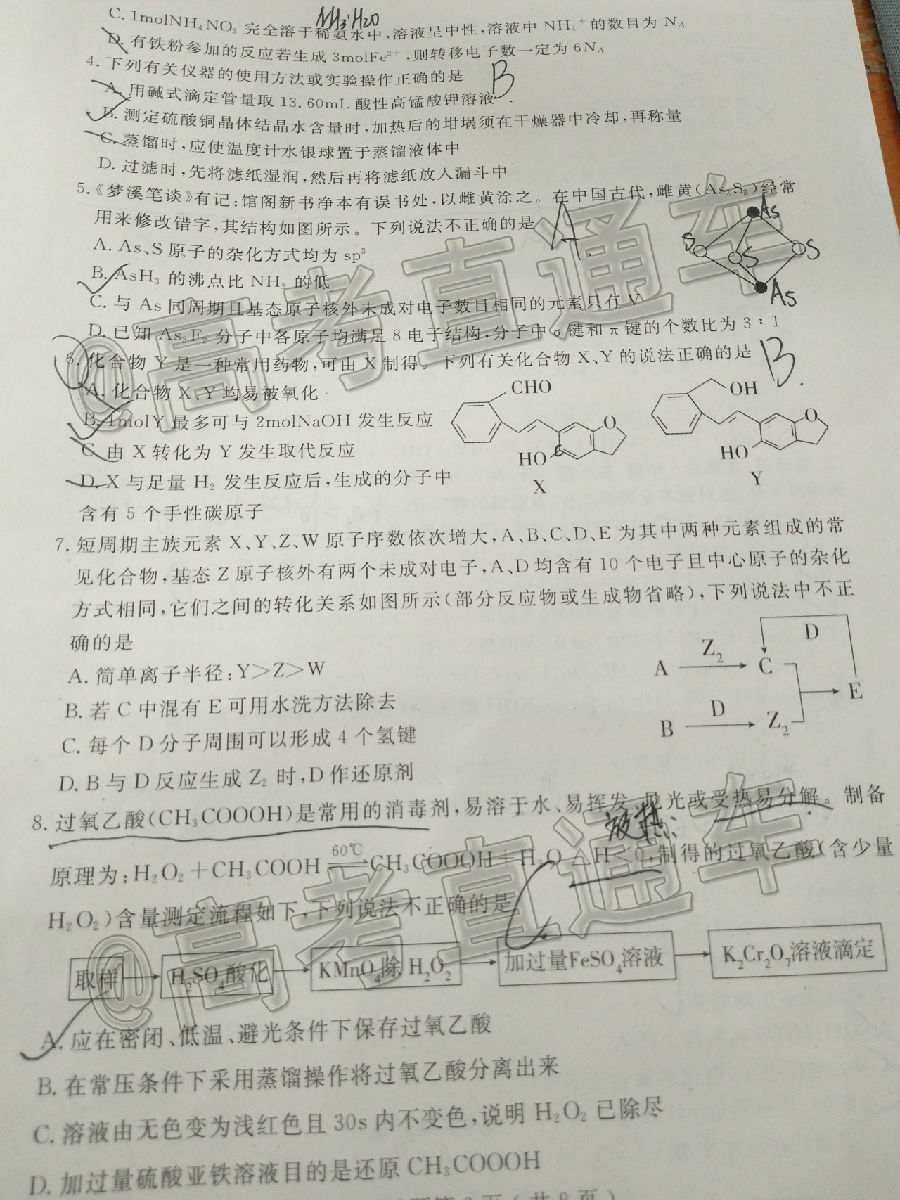 NH₃·H₂O
C. 1molNH₄NO₃ 完全溶于稀氨水中,溶液呈中性,溶液中 NH₄⁺的数目为 N_A
D. 有铁粉参加的反应若生成 3molFe²⁺,则转移电子数一定为 6N_A
4. 下列有关仪器的使用方法或实验操作正确的是 B
A. 用碱式滴定管量取 13.60mL 酸性高锰酸钾溶液
B. 测定硫酸铜晶体结晶水含量时,加热后的坩埚须在干燥器中冷却,再称量
C. 蒸馏时,应使温度计水银球置于蒸馏液体中
D. 过滤时,先将滤纸湿润,然后再将滤纸放入漏斗中
5.《梦溪笔谈》有记:馆阁新书净本有误书处,以雌黄涂之。在中国古代,雌黄(As₂S₃)经常
用来修改错字,其结构如图所示。下列说法不正确的是 A
As
S
S
S
As
A. As、S 原子的杂化方式均为 sp³
B. AsH₃ 的沸点比 NH₃ 的低
C. 与 As 同周期且基态原子核外未成对电子数目相同的元素只有 V
D. 已知 As₂F₂ 分子中各原子均满足 8 电子结构,分子中σ键和π键的个数比为 3∶1
6. 化合物 Y 是一种常用药物,可由 X 制得。下列有关化合物 X、Y 的说法正确的是 B
A. 化合物 X、Y 均易被氧化
B. 1molY 最多可与 2molNaOH 发生反应
C. 由 X 转化为 Y 发生取代反应
D. X 与足量 H₂ 发生反应后,生成的分子中
含有 5 个手性碳原子
CHO
O
HO
X
OH
O
HO
Y
7. 短周期主族元素 X、Y、Z、W 原子序数依次增大,A、B、C、D、E 为其中两种元素组成的常
见化合物,基态 Z 原子核外有两个未成对电子,A、D 均含有 10 个电子且中心原子的杂化
方式相同,它们之间的转化关系如图所示(部分反应物或生成物省略),下列说法中不正
确的是
A. 简单离子半径:Y>Z>W
B. 若 C 中混有 E 可用水洗方法除去
C. 每个 D 分子周围可以形成 4 个氢键
D. B 与 D 反应生成 Z₂ 时,D 作还原剂
D
A Z₂ C
E
B D Z₂
8. 过氧乙酸(CH₃COOOH)是常用的消毒剂,易溶于水、易挥发、见光或受热易分解。制备
放热:
原理为:H₂O₂+CH₃COOH 60℃ ⇌ CH₃COOOH+H₂O △H<0,制得的过氧乙酸(含少量
H₂O₂)含量测定流程如下,下列说法不正确的是
取样 → H₂SO₄酸化 → KMnO₄除 H₂O₂ → 加过量FeSO₄溶液 → K₂Cr₂O₇溶液滴定
A. 应在密闭、低温、避光条件下保存过氧乙酸
B. 在常压条件下采用蒸馏操作将过氧乙酸分离出来
C. 溶液由无色变为浅红色且 30s 内不变色,说明 H₂O₂ 已除尽
D. 加过量硫酸亚铁溶液目的是还原 CH₃COOOH
@高考直通车
@高考直通车